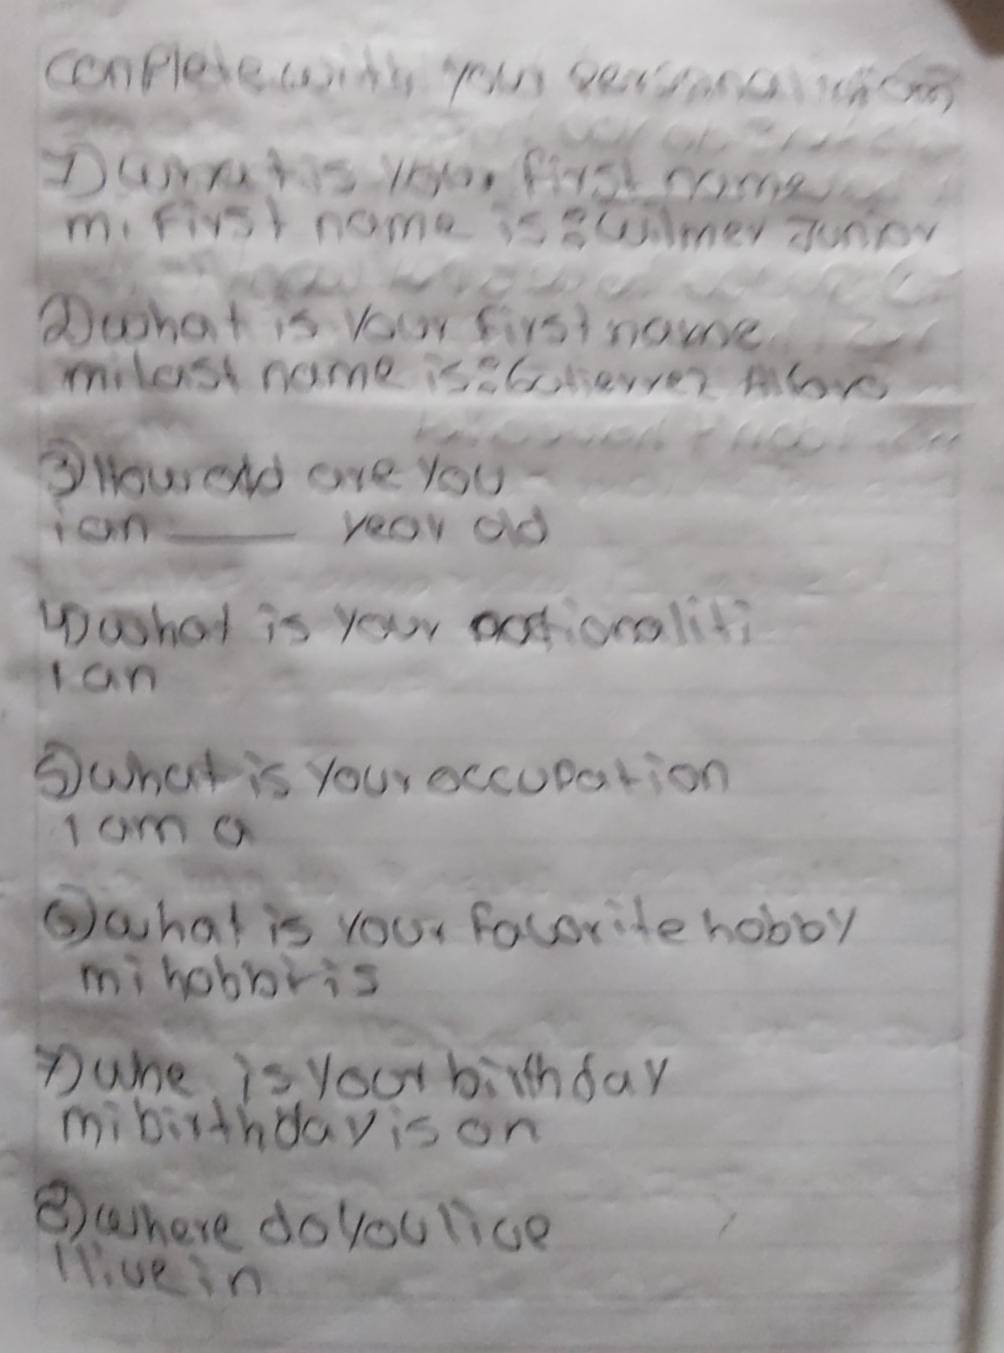 Complete with your personal
1) What is your first name
mi First name is: Wilmer Junior
2) what is your first name
mi last name is: Gutierrez Alfaro
3) How old are you
i an ____ year old
4) what is your nationaliti
I an
5) what is your occupation
I am a
6) what is your favorite hobby
mi hobby is
7) whe is your birthday
mi birthday is on
8) where do you live
I live in